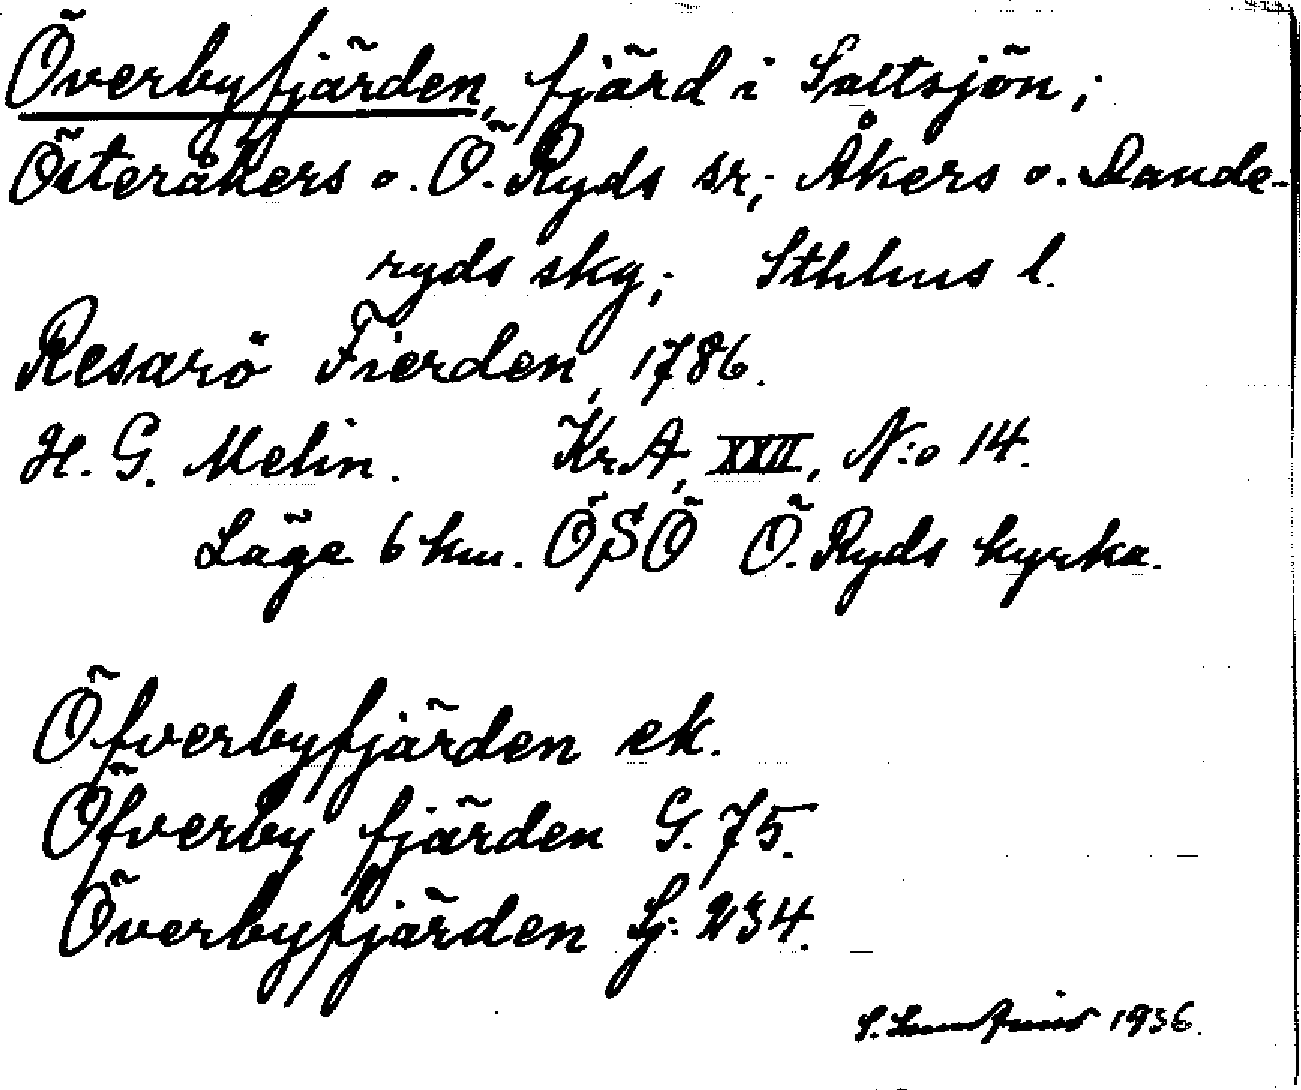 Överbyfjärden, fjärd i Saltsjön;
Österåkers o. Ö. Ryds sr; Åkers o. Dande-
ryds skg; Sthlms l.
Resarö Fierden, 1786.
H. G. Melin. Kr.A, XXII, N:o 14.
Läge 6 km. ÖSÖ Ö. Ryds kyrka.
Öfverbyfjärden ek.
Öfverby fjärden G. 75.
Överbyfjärden Sj. 234.
S. 1936.